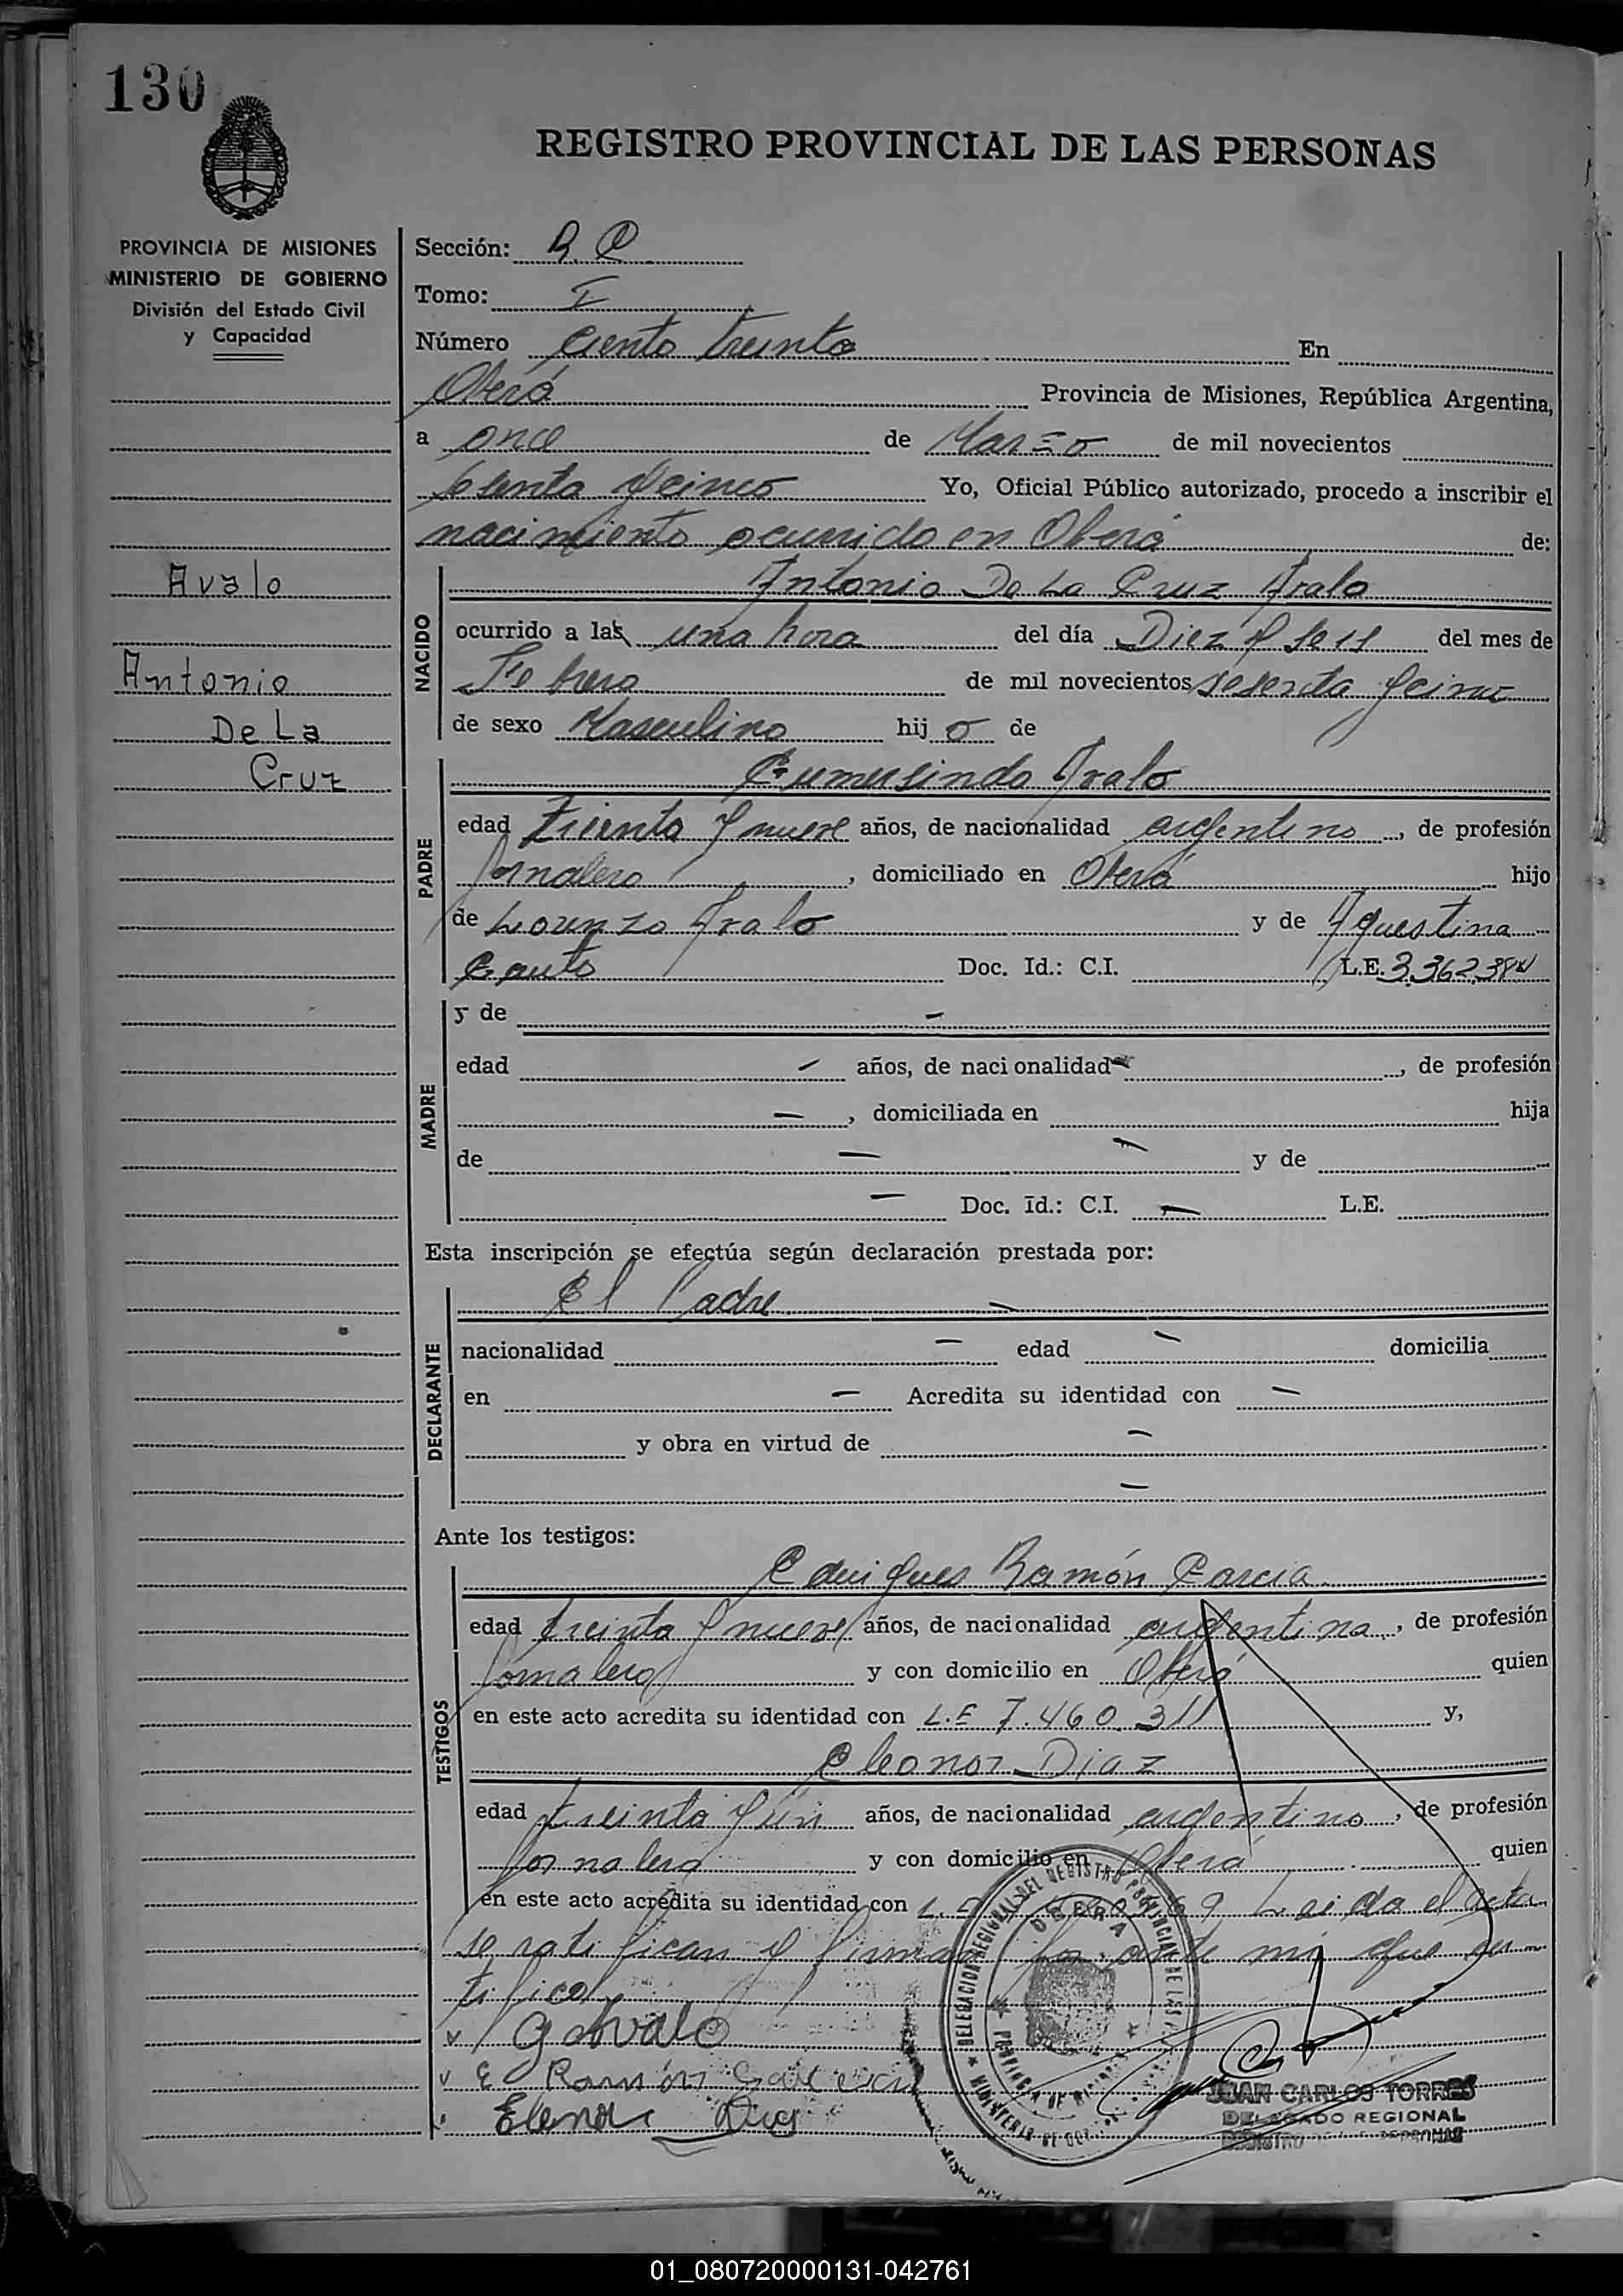 130
REGISTRO PROVINCIAL DE LAS PERSONAS
PROVINCIA DE MISIONES
MINISTERIO DE GOBIERNO
División del Estado Civil
y Capacidad
Avalo
Antonio
De La
Cruz
Sección: R. P.
Tomo: I
Número Ciento treinta En
Oberá Provincia de Misiones, República Argentina,
a once de Marzo de mil novecientos
sesenta y cinco Yo, Oficial Público autorizado, procedo a inscribir el
nacimiento ocurrido en Oberá de:
NACIDO
Antonio De La Cruz Avalo
ocurrido a las una hora del día Diez y seis del mes de
Febrero de mil novecientos sesenta y cinco
de sexo Masculino hij o de
PADRE
Gumersindo Avalo
edad Treinta y nueve años, de nacionalidad argentino, de profesión
Jornalero, domiciliado en Oberá hijo
de Lorenzo Avalo y de Aguestina
Doc. Id.: C.I. L.E. 3.362.384
MADRE
y de -
edad - años, de nacionalidad -, de profesión
-, domiciliada en hija
de - y de
- Doc. Id.: C.I. - L.E.
Esta inscripción se efectúa según declaración prestada por:
DECLARANTE
El Padre -
nacionalidad - edad - domicilia
en - Acredita su identidad con -
y obra en virtud de -
-
Ante los testigos:
TESTIGOS
Ramón Garcia
edad treinta y nueve años, de nacionalidad argentina, de profesión
Jornalero y con domicilio en Oberá quien
en este acto acredita su identidad con L.E 7.460.311 y,
Eleonor Diaz
edad treinta y un años, de nacionalidad argentino, de profesión
Jornalero y con domicilio en Oberá quien
en este acto acredita su identidad con L. Leida el acta
se ratifican y firman por ante mi que cer
tifico
G Avalo
E Ramón Garcia
Elenor Diaz
DELEGACION REGIONAL DEL REGISTRO PROVINCIAL DE LAS
OBERA
JUAN CARLOS TORRES
DELEGADO REGIONAL
01_080720000131-042761